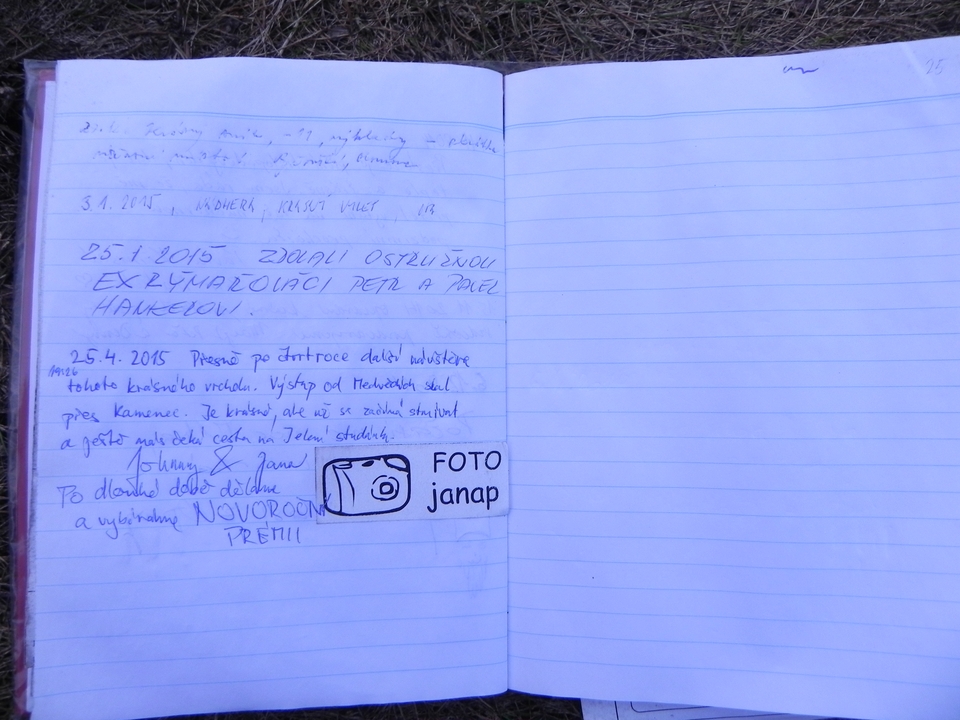 3.1.2015, NÁDHERA, KRÁSNÝ VÝLET
25.1.2015 ZDOLALI OSTRUŽNOU
EXRÝMAŘOVÁČI PETR A PAVEL
HANKEROVI.
25.4.2015 Přesně po čtvrtroce další návštěva
tohoto krásného vrcholu. Výstup od Medvědích skal
přes Kamenec. Je krásně, ale už se začíná stmívat
a ještě nás čeká cesta na Jelení studánku.
Johnny & Jana
FOTO
janap
Po dlouhé době děláme
a vybíráme NOVOROČNÍ
PRÉMII
25